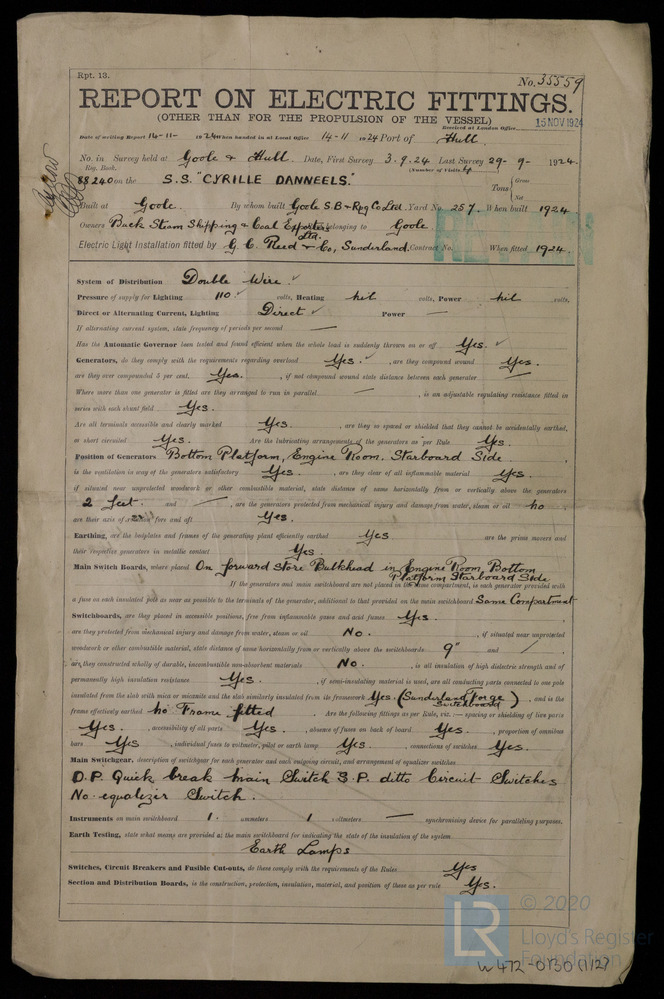 Rpt. 13.
No. 35559
REPORT ON ELECTRIC FITTINGS.
(OTHER THAN FOR THE PROPULSION OF THE VESSEL)
Received at London Office
15 NOV 1924
Date of writing Report 14-11- 1924 When handed in at Local Office 14-11 1924 Port of Hull
No. in Survey held at Goole & Hull. Date, First Survey 3.9.24 Last Survey 29-9- 1924
Reg. Book. (Number of Visits
88240 on the S.S. "CYRILLE DANNEELS." Tons { Gross Net
Built at Goole. By whom built Goole S.B & Rpg Co Ltd. Yard No. 257. When built 1924
Owners Back Steam Shipping & Coal Exporters Ltd. belonging to Goole
Electric Light Installation fitted by G. C. Reed & Co, Sunderland. Contract No. When fitted 1924.
System of Distribution Double Wire.
Pressure of supply for Lighting 110 volts, Heating Nil volts, Power Nil volts,
Direct or Alternating Current, Lighting Direct Power —
If alternating current system, state frequency of periods per second —
Has the Automatic Governor been tested and found efficient when the whole load is suddenly thrown on or off Yes.
Generators, do they comply with the requirements regarding overload Yes. , are they compound wound Yes.
are they over compounded 5 per cent. Yes. , if not compound wound state distance between each generator —
Where more than one generator is fitted are they arranged to run in parallel — , is an adjustable regulating resistance fitted in
series with each shunt field Yes.
Are all terminals accessible and clearly marked Yes. , are they so spaced or shielded that they cannot be accidentally earthed,
or short circuited Yes. Are the lubricating arrangements of the generators as per Rule Yes.
Position of Generators Bottom Platform, Engine Room, Starboard Side
is the ventilation in way of the generators satisfactory Yes. , are they clear of all inflammable material Yes.
if situated near unprotected woodwork or other combustible material, state distance of same horizontally from or vertically above the generators
2 feet. and — , are the generators protected from mechanical injury and damage from water, steam or oil No
are their axis of rotation fore and aft Yes.
Earthing, are the bedplates and frames of the generating plant efficiently earthed Yes are the prime movers and
their respective generators in metallic contact Yes.
Main Switch Boards, where placed On forward store Bulkhead in Engine Room, Bottom
Platform Starboard Side
If the generators and main switchboard are not placed in the same compartment, is each generator provided with
a fuse on each insulated pole as near as possible to the terminals of the generator, additional to that provided on the main switchboard Same Compartment
Switchboards, are they placed in accessible positions, free from inflammable gases and acid fumes Yes.
are they protected from mechanical injury and damage from water, steam or oil No. , if situated near unprotected
woodwork or other combustible material, state distance of same horizontally from or vertically above the switchboards 9" and —
are they constructed wholly of durable, incombustible non-absorbent materials No. , is all insulation of high dielectric strength and of
permanently high insulation resistance Yes. , if semi-insulating material is used, are all conducting parts connected to one pole
insulated from the slab with mica or micanite and the slab similarly insulated from its framework Yes. (Sunderland Forge Switchboard) , and is the
frame effectively earthed No Frame fitted . Are the following fittings as per Rule, viz.:— spacing or shielding of live parts
Yes. , accessibility of all parts Yes. , absence of fuses on back of board Yes. , proportion of omnibus
bars Yes , individual fuses to voltmeter, pilot or earth lamp Yes. , connections of switches Yes.
Main Switchgear, description of switchgear for each generator and each outgoing circuit, and arrangement of equalizer switches
D.P. Quick break main Switch S.P. ditto Circuit Switches
No equalizer Switch.
Instruments on main switchboard 1. ammeters 1 voltmeters — synchronising device for paralleling purposes.
Earth Testing, state what means are provided at the main switchboard for indicating the state of the insulation of the system
Earth Lamps
Switches, Circuit Breakers and Fusible Cut-outs, do these comply with the requirements of the Rules Yes
Section and Distribution Boards, is the construction, protection, insulation, material, and position of these as per rule Yes.
LR
© 2020
Lloyd's Register
Foundation
W472-0130(1/2)